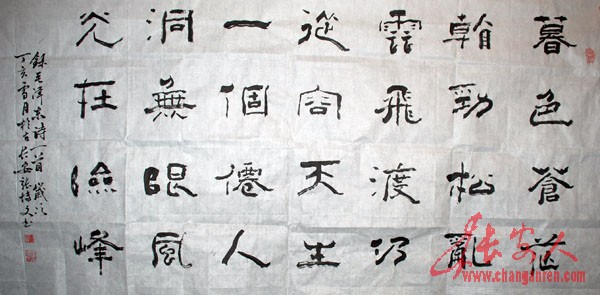 暮色蒼茫
看勁松亂
雲飛渡仍
從容天生
一個僊人
洞無限風
光在險峰
錄毛澤東詩一首歲次
丁亥雪月於古長安張
长安人
www.changanren.com